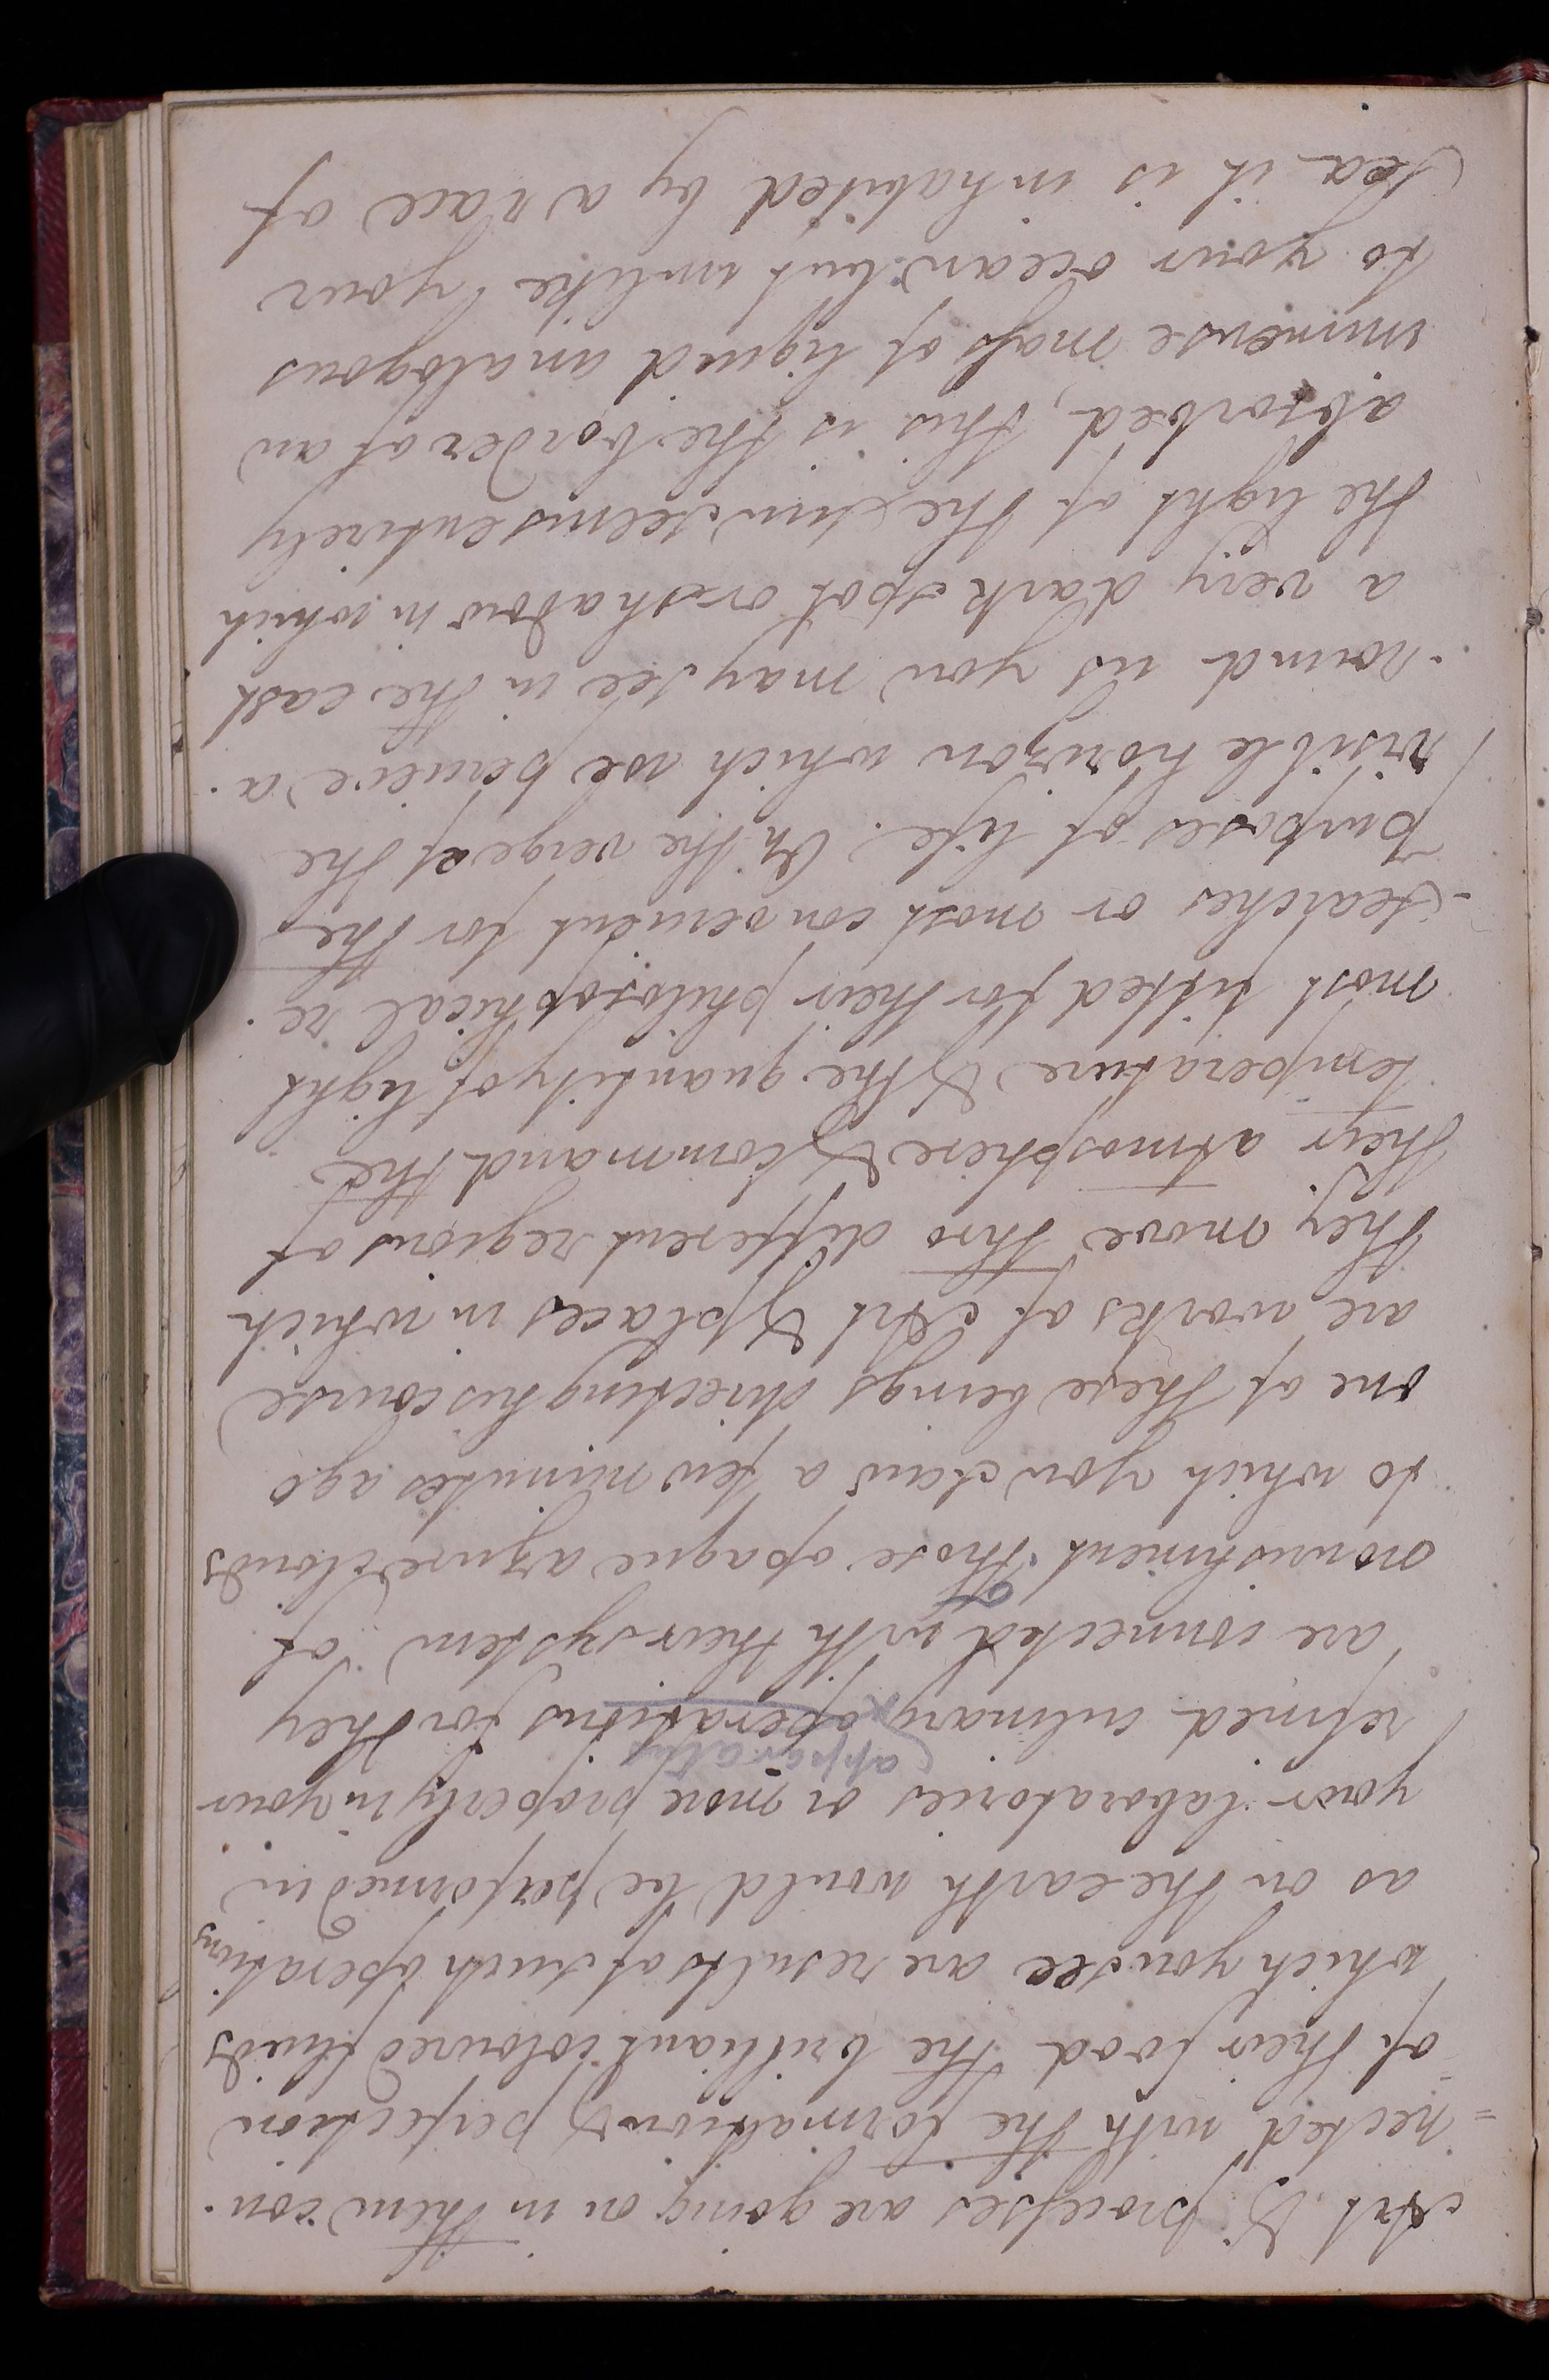 Art & processes are going on in them con-
=nected with the formation & perfection
=of their food the brilliant coloured fluids
which you see are results of such operations
as on the earth would be performed in
your laboratories or more properly in your
(apparatus
refined culinary operations for they
are connected with their system of
nourishment. Those opaque azure clouds
to which you saw a few minutes ago
one of these beings directing his course
are works of Art & places in which
they move thro different regions of
their atmosphere & command the
temperature & the quantity of light
most fitted for their philosophical re-
-searches or most convenient for the
purposes of life. On the verge of the
visible horizon which we perceive a-
-round us you may see in the east
a very dark spot or shadow in which
the light of the sun seems entirely
absorbed, this is the border of an
immense mass of liquid analogous
to your ocean but unlike your
Sea it is inhabited by a race of